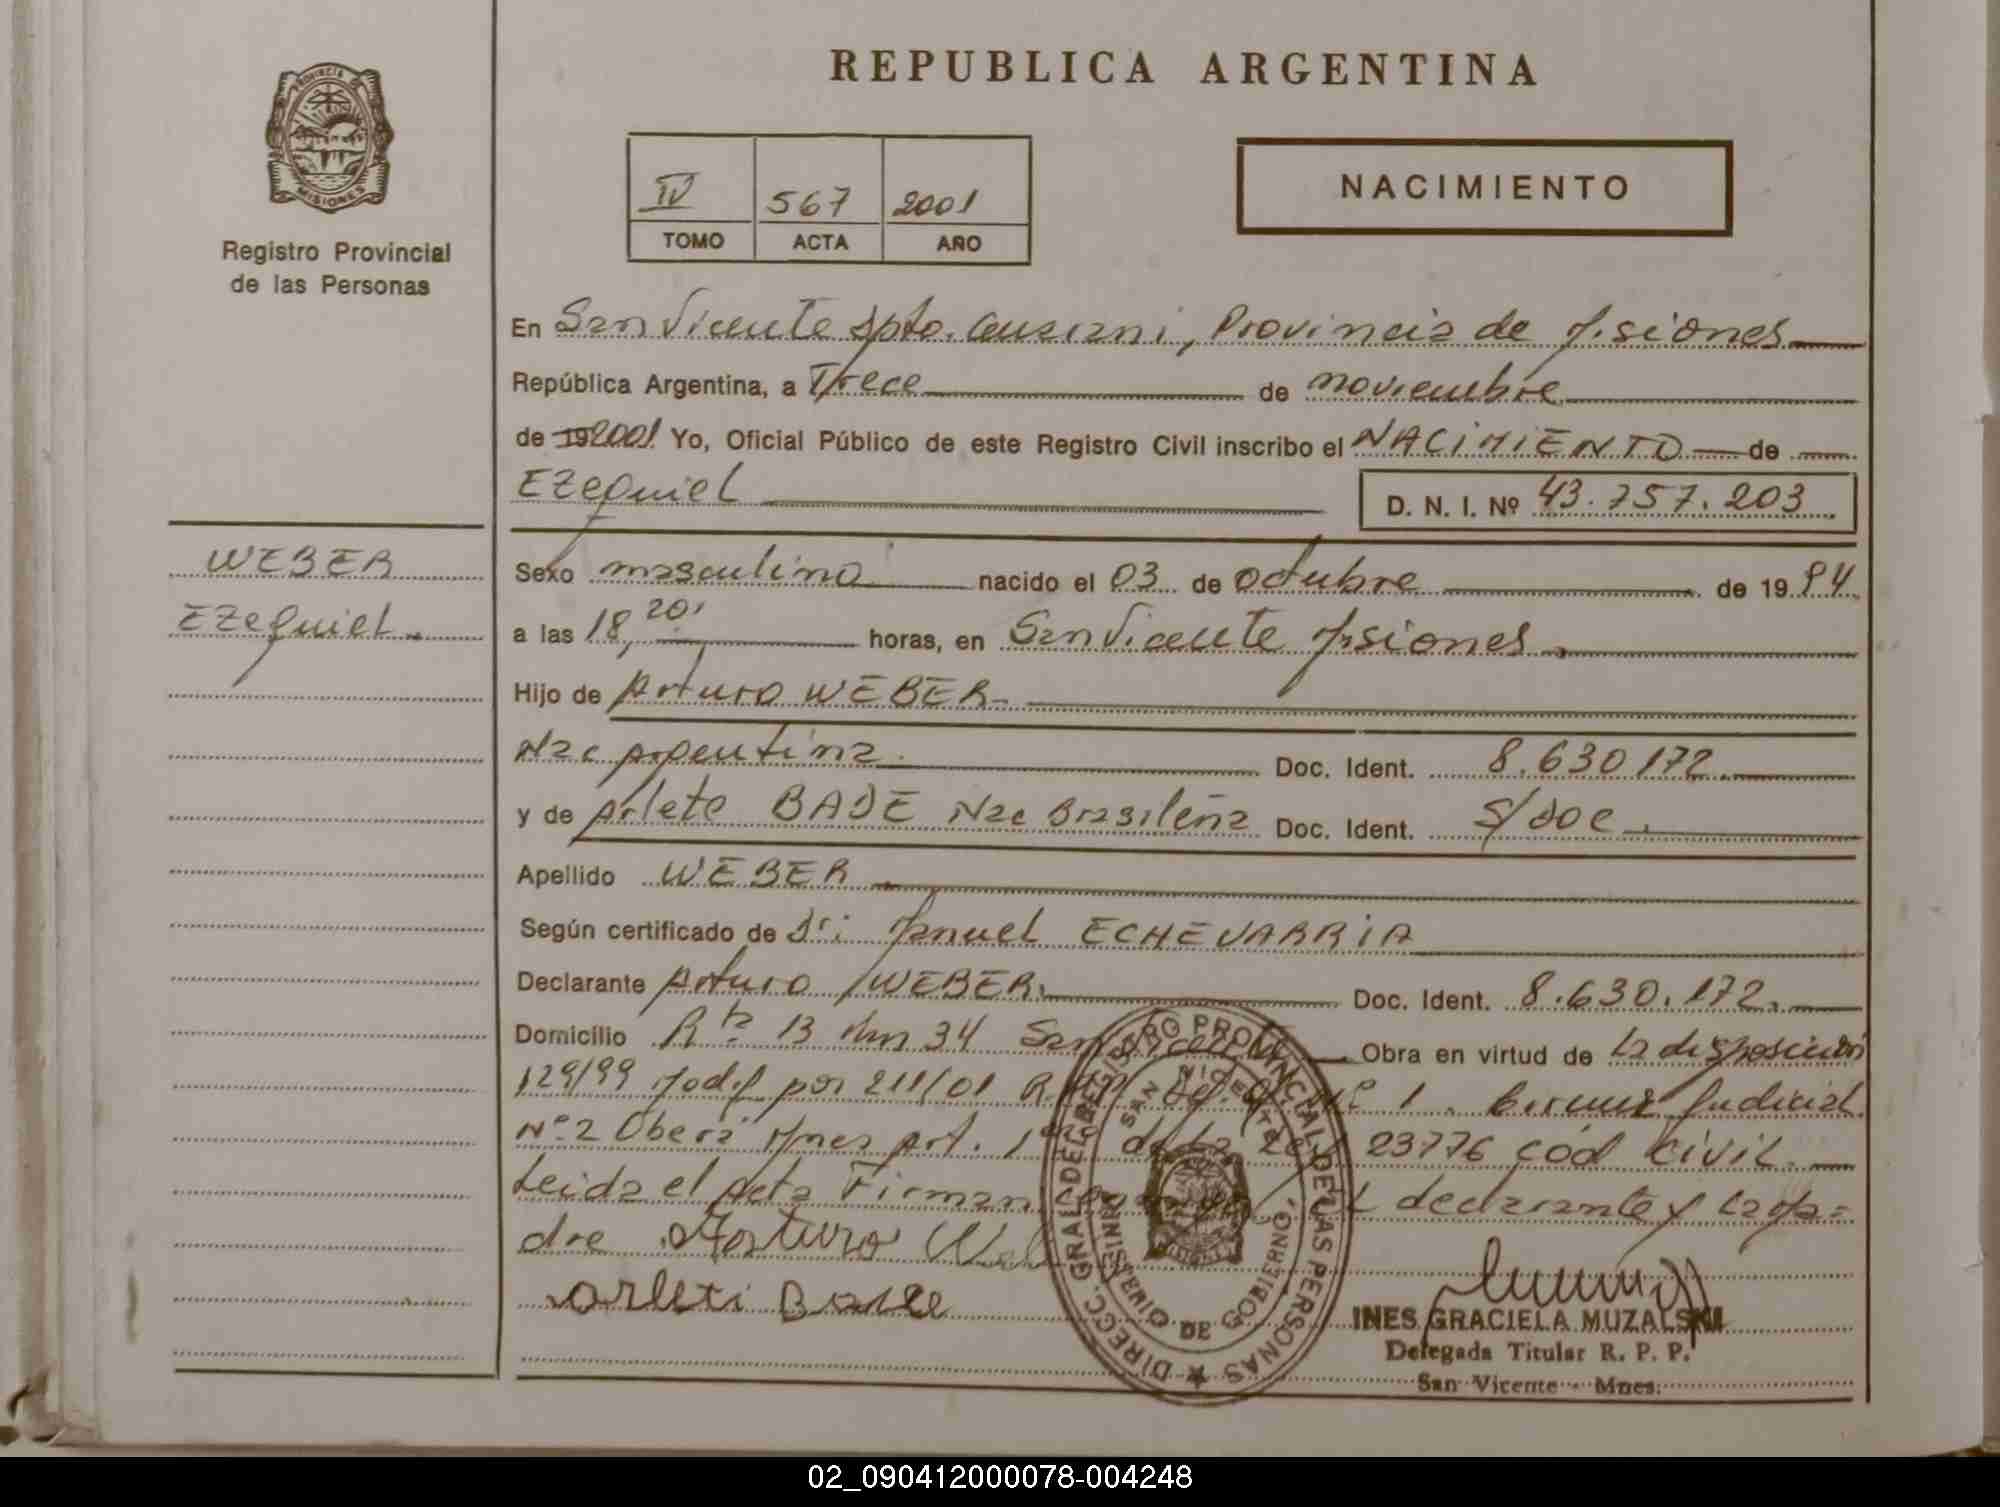 REPUBLICA ARGENTINA
PROVINCIA DE
MISIONES
Registro Provincial
de las Personas
IV 567 2001
TOMO ACTA AÑO
NACIMIENTO
En San Vicente Dpto. Guarani, Provincia de Misiones
República Argentina, a Trece de noviembre
de 19 2001. Yo, Oficial Público de este Registro Civil inscribo el NACIMIENTO de
Ezequiel D. N. I. Nº 43.757.203
WEBER
Ezequiel
Sexo masculino nacido el 03 de octubre de 1994
a las 18,20' horas, en San Vicente Misiones.
Hijo de Arturo WEBER
Nac Argentina. Doc. Ident. 8.630172.
y de Arlete BADE Nac Brasileña Doc. Ident. S/doc.
Apellido WEBER
Según certificado de Dr: Manuel ECHEVARRIA
Declarante Arturo WEBER. Doc. Ident. 8.630.172.
Domicilio Rta 13 Km 34 San Vicente Obra en virtud de La disposición
129/99 Modif por 211/01 Nº 1. Circuns Judicial
Nº 2 Oberá Mnes Art. 1 de la Ley 23776 Cód Civil.
Leida el Acta Firman el declarante y la Ma=
dre Arturo Weber
Arleti Bade
DIRECC. GRAL. DEL REGISTRO PROVINCIAL DE LAS PERSONAS
SAN VICENTE
MINISTERIO DE GOBIERNO
INES GRACIELA MUZALSKI
Delegada Titular R. P. P.
San Vicente - Mnes.
02_090412000078-004248